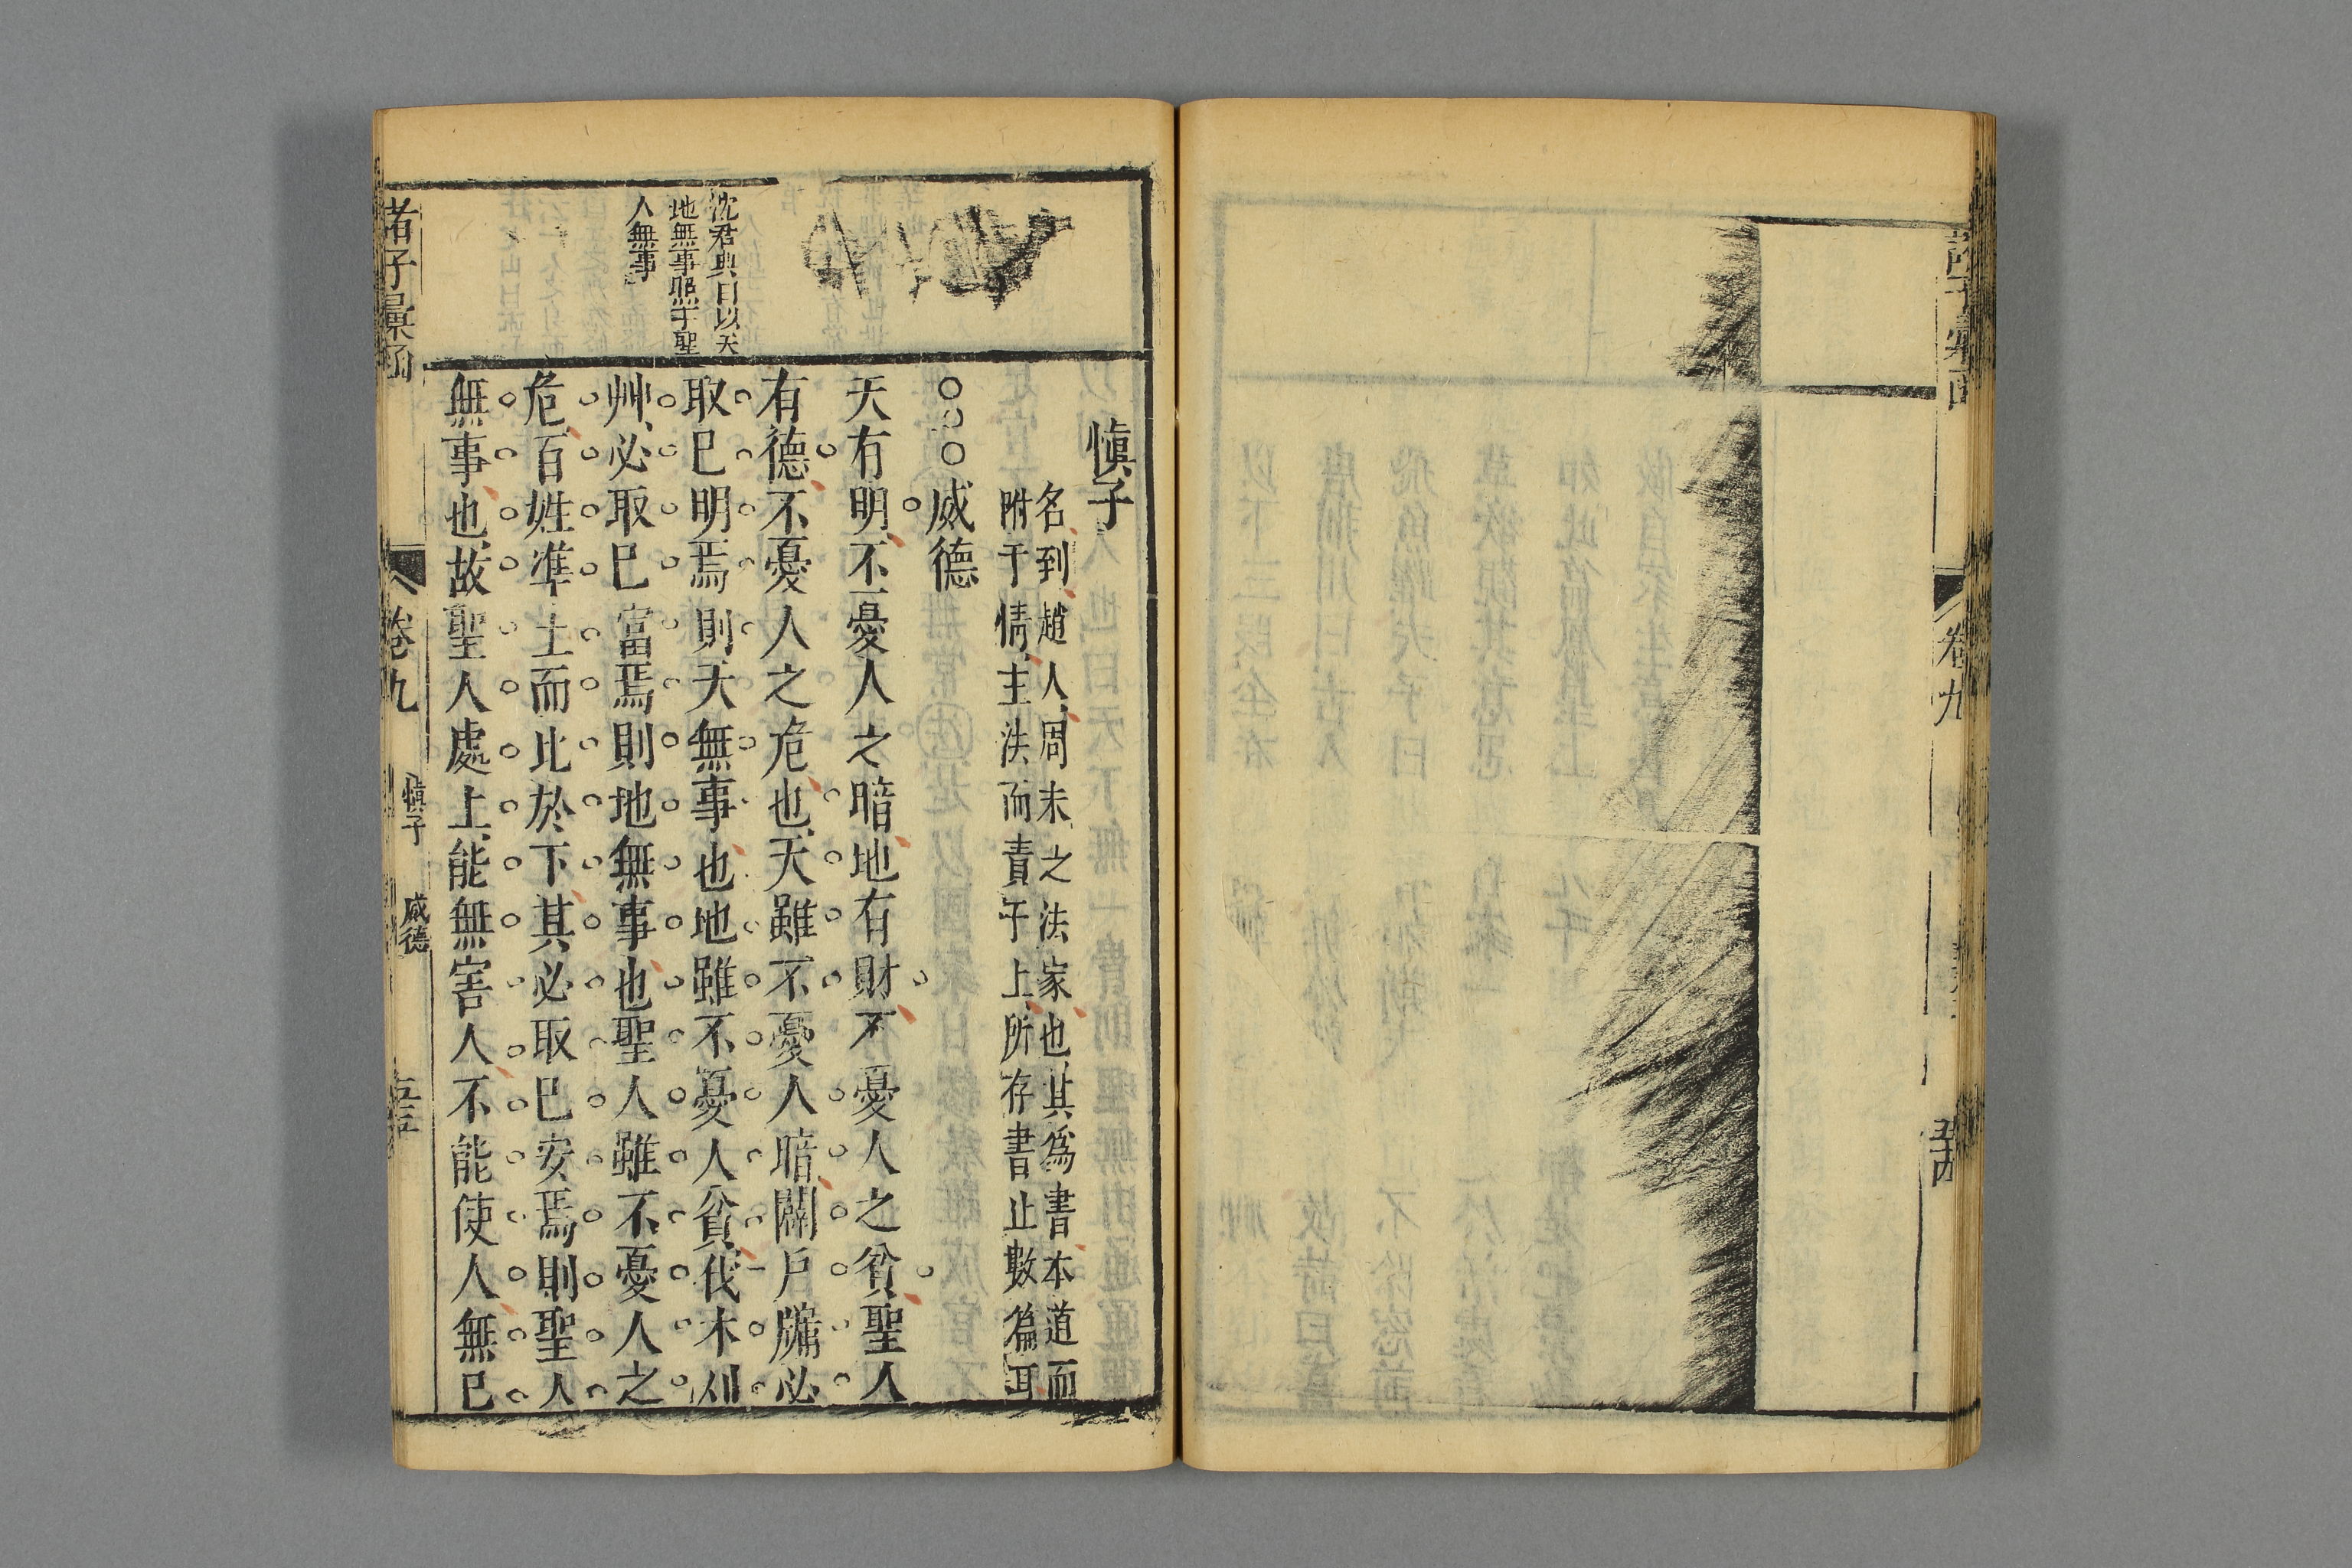 諸子彙函
卷九
慎子
名到趙人周末之法家也其為書本道而
附于情主法而責于上所存書止數篇耳
○○○威德
天有明不憂人之暗地有財不憂人之貧聖人
有德不憂人之危也天雖不憂人暗闢戶牖必
取已明焉則天無事也地雖不憂人貧伐木刈
艸必取已富焉則地無事也聖人雖不憂人之
危百姓準上而比於下其必取已安焉則聖人
無事也故聖人處上能無害人不能使人無已
沈君典曰以天
地無事照于聖
人無事
諸子彙函
卷九
慎子
威德